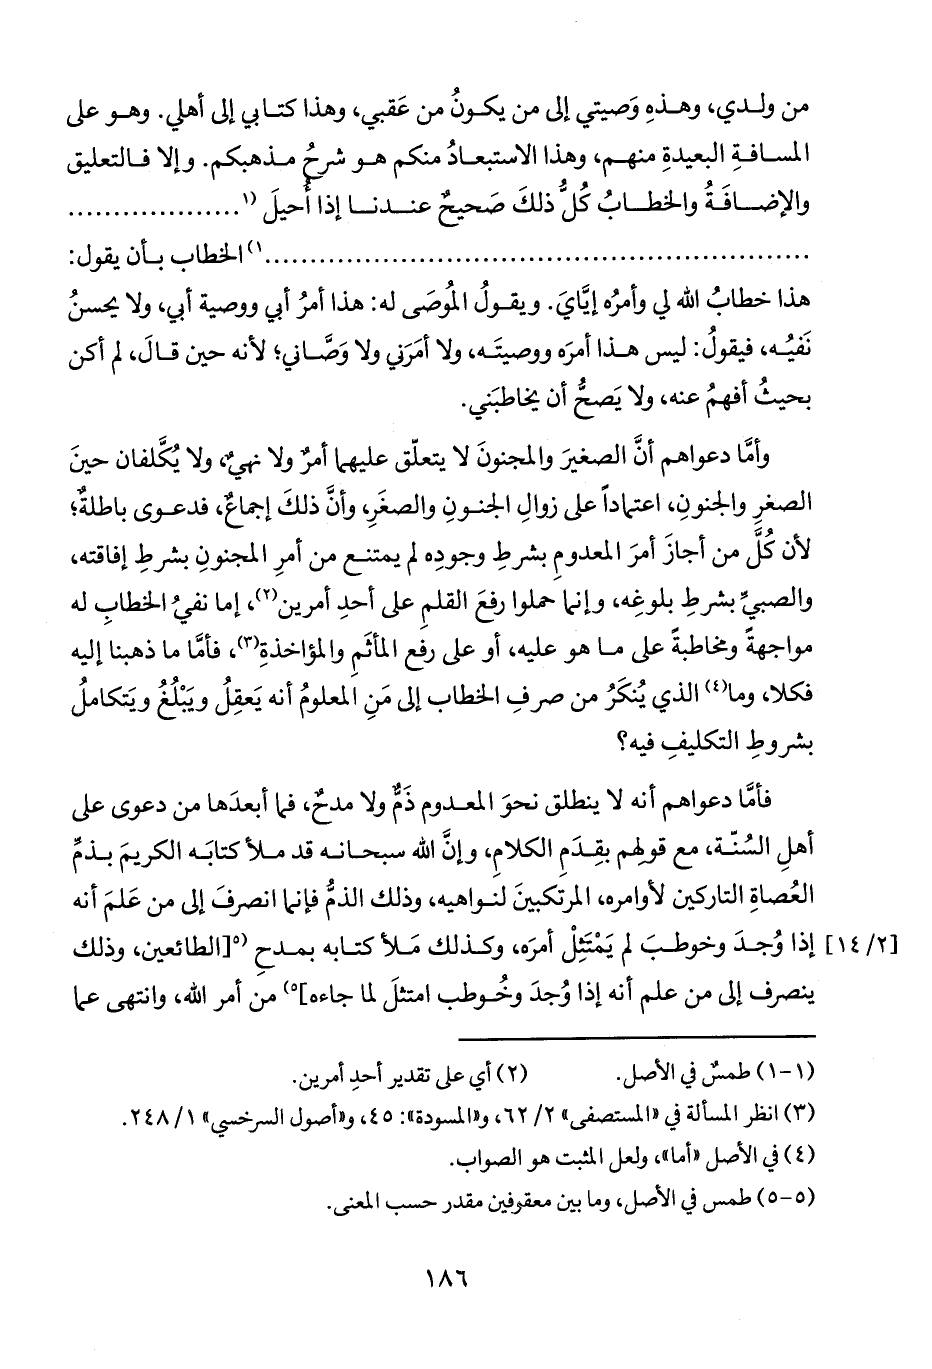 من ولدي، وهذهِ وَصيتي إلى من يكونُ من عَقبي، وهذا كتابي إلى أهلي. وهو على
المسافةِ البعيدةِ منهم، وهذا الاستبعادُ منكم هو شرحُ مذهبكم. وإلا فالتعليق
والإضافَةُ والخطابُ كُلُّ ذلكَ صَحيحٌ عندنا إذا أُحيلَ (١...................
............................................................١)الخطاب بأن يقول:
هذا خطابُ الله لي وأمرُه إيَّايَ. ويقولُ المُوصَى له: هذا أمرُ أبي ووصية أبي، ولا يحسنُ
نَفيُه، فيقولُ: ليس هذا أمرَه ووصيتَه، ولا أمَرَني ولا وَصَّاني؛ لأنه حين قالَ، لم أكن
بحيثُ أفهمُ عنه، ولا يَصحُّ أن يخاطبَني.
وأمَّا دعواهم أنَّ الصغيرَ والمجنونَ لا يتعلّق عليهما أمرٌ ولا نهيٌ، ولا يُكَّلفان حينَ
الصغرِ والجنونِ، اعتماداً على زوالِ الجنونِ والصغَرِ، وأنَّ ذلكَ إجماعٌ، فدعوى باطلةٌ؛
لأن كُلَّ من أجازَ أمرَ المعدومِ بشرطِ وجودِه لم يمتنع من أمرِ المجنونِ بشرطِ إفاقته،
والصبيِّ بشرطِ بلوغِه، وإنما حملوا رفعَ القلمِ على أحدِ أمرين(٢)، إما نفيُ الخطابِ له
مواجهةً ومخاطبةً على ما هو عليه، أو على رفع المأثَمِ والمؤاخذةِ(٣)، فأمَّا ما ذهبنا إليه
فكلا، وما(٤) الذي يُنكَرُ من صرفِ الخطاب إلى مَنِ المعلومُ أنه يَعقِلُ ويَبْلُغُ ويَتكاملُ
بشروطِ التكليفِ فيه؟
فأمَّا دعواهم أنه لا ينطلق نحوَ المعدوم ذَمٌّ ولا مدحٌ، فما أبعدَها من دعوى على
أهلِ السُنّة، مع قولهم بقِدَمِ الكلامِ، وإنَّ الله سبحانه قد ملأ كتابَه الكريمَ بذمِّ
العُصاةِ التاركين لأوامره، المرتكبينَ لنواهيه، وذلك الذمُّ فإنما انصرفَ إلى من عَلمَ أنه
[٢/ ١٤] إذا وُجدَ وخوطبَ لم يَمْتَثِلْ أمرَه، وكذلك مَلأ كتابه بمدحِ (٥[الطائعين، وذلك
ينصرف إلى من علم أنه إذا وُجدَ وخُوطب امتثلَ لما جاءه]٥) من أمر الله، وانتهى عما
(١-١) طمسٌ في الأصل.
(٢) أي على تقدير أحدِ أمرين.
(٣) انظر المسألة في «المستصفى» ٢/ ٦٢، و«المسودة»: ٤٥، و«أصول السرخسي» ١/ ٢٤٨.
(٤) في الأصل «أما»، ولعل المثبت هو الصواب.
(٥-٥) طمس في الأصل، وما بين معقوفين مقدر حسب المعنى.
١٨٦